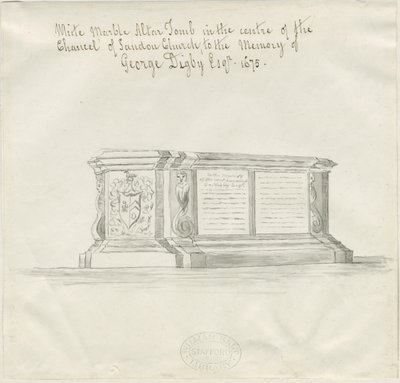 Wite Marble Altar Tomb in the centre of the
Chancel of Sandon Church to the Memory of
George Digby Esqr. 1675.
WILLIAM SALT
STAFFORD
LIBRARY